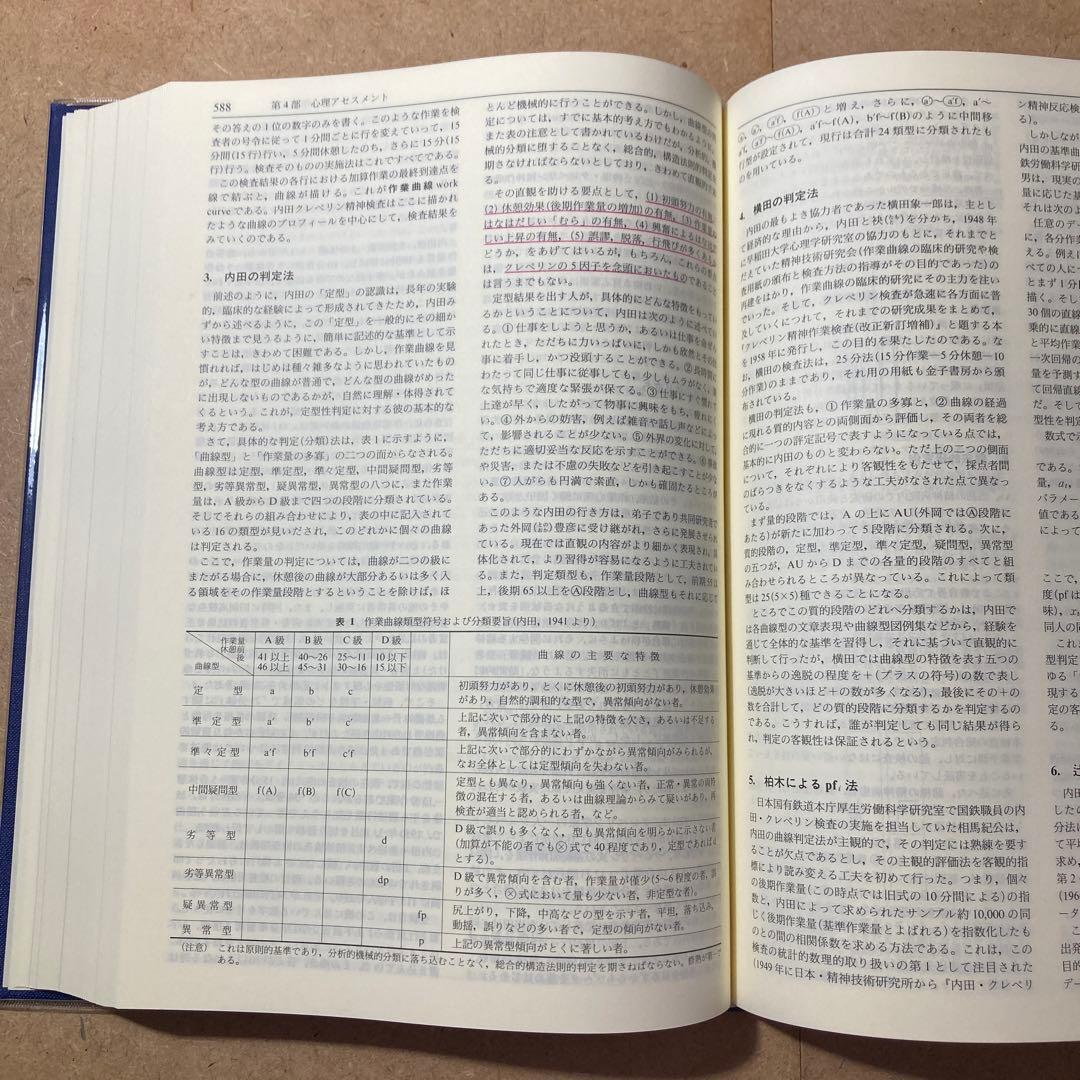 588
第4部 心理アセスメント
その答えの1位の数字のみを書く。このような作業を検
査者の号令に従って1分間ごとに行を変えていって，15
分間(15行)行い，5分間休憩したのち，さらに15分(15
行)行う。検査そのものの実施法はこれですべてである。
この検査結果の各行における加算作業の最終到達点を
線で結ぶと，曲線が描ける。これが作業曲線 work
curve である。内田クレペリン精神検査はここに描かれ
たような曲線のプロフィールを中心にして，検査結果を
みていくのである。
3. 内田の判定法
前述のように，内田の「定型」の認識は，長年の実験
的，臨床的な経験によって形成されてきたため，内田み
ずから述べるように，この「定型」を一般的にその細か
い特徴まで見うるように，簡単に記述的な基準として示
すことは，きわめて困難である。しかし，作業曲線を見
慣れれば，はじめは種々雑多なように思われていたもの
が，どんな型の曲線が普通で，どんな型の曲線がめった
に出現しないものであるかが，自然に理解・体得されて
くるという。これが，定型性判定に対する彼の基本的な
考え方である。
さて，具体的な判定(分類)法は，表1に示すように，
「曲線型」と「作業量の多寡」の二つの面からなされる。
曲線型は定型，準定型，準々定型，中間疑問型，劣等
型，劣等異常型，疑異常型，異常型の八つに，また作業
量は，A級からD級まで四つの段階に分類されている。
そしてそれらの組み合わせにより，表の中に記入されて
いる16の類型が見いだされ，このどれかに個々の曲線
は判定される。
ここで，作業量の判定については，曲線が二つの級に
またがる場合に，休憩後の曲線が大部分あるいは多く入
る領域をその作業量段階とするということを除けば，ほ
とんど機械的に行うことができる。しかし，曲線型の判
定については，すでに基本的考え方でもわかるように，
また表の注意として書かれているわけだが，分析的，機
械的分類に堕することなく，総合的，構造法則的判定を
期さなければならないとしており，きわめて直観的であ
る。
その直観を助ける要点として，(1) 初頭努力の有無，
(2) 休憩効果(後期作業量の増加)の有無，(3) 作業量の
はなはだしい「むら」の有無，(4) 興奮による
しい上昇の有無，(5) 誤謬，脱落，行飛びが多くあるか
どうか，をあげてはいるが，もちろん，これらの要点
は，クレペリンの5因子を念頭においたものであること
は言うまでもない。
定型結果を出す人が，具体的にどんな特徴をもってい
るかということについて，内田は次のように述べてい
る。① 仕事をしようと思うか，あるいは仕事を命ぜら
れたとき，ただちに力いっぱいに，しかも欣然とその仕
事に着手し，かつ没頭することができる。② 長時間に
わたって同じ仕事に従事しても，少しもムラがなく，平
な気持ちで適度な緊張が保てる。③ 仕事にすぐ慣れて
上達が早く，したがって物事に興味をもち，疲れにく
い。④ 外からの妨害，例えば雑音や話し声などによっ
て，影響されることが少ない。⑤ 外界の変化に対して，
ただちに適切妥当な反応を示すことができる。⑥ 事故
や災害，または不慮の失敗などを引き起こすことが少な
い。⑦ 人がらも円満で素直，しかも確固たるところが
ある。
このような内田の行き方は，弟子であり共同研究者で
あった外岡豊彦に受け継がれ，さらに発展させられ
ている。現在では直観の内容がより細かく表現され，具
体化されて，より習得が容易になるように工夫されてい
る。また，判定類型も，作業量段階として，前期55以
上，後期65以上をⒶ段階とし，曲線型もそれに応じて
表1 作業曲線類型符号および分類要旨(内田，1941より)
作業量 休憩前 後 曲線型 A級 B級 C級 D級 曲線の主要な特徴
41以上 40〜26 25〜11 10以下
46以上 45〜31 30〜16 15以下
定型 a b c 初頭努力があり，とくに休憩後の初頭努力があり，休憩効果
があり，自然的調和的な型で，異常傾向がない者。
準定型 a′ b′ c′ 上記に次いで部分的に上記の特徴を欠き，あるいは不足する
者，異常傾向を含まない者。
準々定型 a′f b′f c′f 上記に次いで部分的にわずかながら異常傾向がみられるが，
なお全体としては定型傾向を失わない者。
中間疑問型 f(A) f(B) f(C) 定型とも異なり，異常傾向も強くない者，正常・異常の両特
徴の混在する者，あるいは曲線理論からみて疑いがあり，再
検査が適当と認められる者，など。
劣等型 d D級で誤りも多くなく，型も異常傾向を明らかに示さない者
(加算が不能の者でも⊗式で40程度であり，定型であればd
とする)。
劣等異常型 dp D級で異常傾向を含む者，作業量が僅少(5〜6程度の者，誤
りが多く，⊗式においても量も少ない者，非定型な者)。
疑異常型 fp 尻上がり，下降，中高などの型を示す者，平坦，落ち込み，
動揺，誤りなどの多い者で，定型の傾向がない者。
異常型 p 上記の異常型傾向がとくに著しい者。
(注意) これは原則的基準であり，分析的機械的分類に落ち込むことなく，総合的構造法則的判定を期さねばならない。
ある。
ⓐ′〜ⓐ′f，a′〜
f(A) と増え，さらに，
a′f〜f(A)，b′f〜f(B) のように中間移
行型が設定されて，現行は合計24類型に分類されたも
のを用いている。
4. 横田の判定法
内田の最もよき協力者であった横田象一郎は，主とし
て経済的な理由から，内田と袂を分かち，1948年
に早稲田大学心理学研究室の協力のもとに，それまでと
だえていた精神技術研究会(作業曲線の臨床的研究や検
査用紙の頒布と検査方法の指導がその目的であった)の
再建をはかり，作業曲線の臨床的研究にその主力を注い
でいった。そして，クレペリン検査が急速に各方面に普
及していくにつれて，それまでの研究成果をまとめて，
『クレペリン精神作業検査(改正新訂増補)』と題する本
を1958年に発行し，この目的を果たしたのである。な
お，横田の検査法は，25分法(15分作業―5分休憩―10
分作業)のままであり，それ用の用紙も金子書房から頒
布されている。
横田の判定法も，① 作業量の多寡と，② 曲線の経過
に現れる質的内容との両側面から評価し，その両者を総
合的に一つの評定記号で表すようになっている点では，
基本的に内田のものと変わらない。ただ上の二つの側面
について，それぞれにより客観性をもたせて，採点者間
のばらつきをなくするような工夫がなされた点で異なっ
ている。
まず量的段階では，Aの上にAU(外岡ではⒶ段階に
あたる)が新たに加わって5段階に分類される。次に，
質的段階の，定型，準定型，準々定型，疑問型，異常型
の五つが，AUからDまでの各量的段階のすべてと組
み合わせられるところが異なっている。これによって類
型は25(5×5)種できることになる。
ところでこの質的段階のどれへ分類するかは，内田で
は各曲線型の文章表現や曲線型図例集などから，経験を
通じて全体的な基準を習得し，それに基づいて直観的に
判断して行ったが，横田では曲線型の特徴を表す五つの
基準からの逸脱の程度を＋(プラスの符号)の数で表し
(逸脱が大きいほど＋の数が多くなる)，最後にその＋の
数を合計して，どの質的段階に分類するかを判定するの
である。こうすれば，誰が判定しても同じ結果が得ら
れ，判定の客観性は保証されるという。
5. 柏木による pf, 法
日本国有鉄道本庁厚生労働科学研究室で国鉄職員の内
田・クレペリン検査の実施を担当していた相馬紀公は，
内田の曲線判定法が主観的で，その判定には熟練を要す
ることが欠点であるとし，その主観的評価法を客観的指
標により読み変える工夫を初めて行った。つまり，個々
の後期作業量(この時点では旧式の10分間による)の指
数と，内田によって求められたサンプル約10,000の同
じく後期作業量(基準作業量とよばれる)を指数化したも
のとの間の相関係数を求める方法である。これは，この
検査の統計的数理的取り扱いの第1として注目された
(1949年に日本・精神技術研究所から『内田・クレペリ
ン精神反応検
る)。
しかしなが
内田の基準曲
鉄労働科学研
男は，現実の
量に応じた基
それは次のよ
任意のデー
に，各分作業
る。例えば
べての人に
とまず1分
描く。そし
30個の直線
乗的に直線
と平均作業
一次回帰の
量を予測す
て回帰直線
だ。そして
型性を判定
数式で
である。
量，
パラメー
値である
によって
ここで，
度(pfは
味)，
同人の同
型判定
ゆる「
現する
定の客
6.
内田
したの
分法い
て平均
求め，
第2
(196
ータ
こ
出発
目的
デー